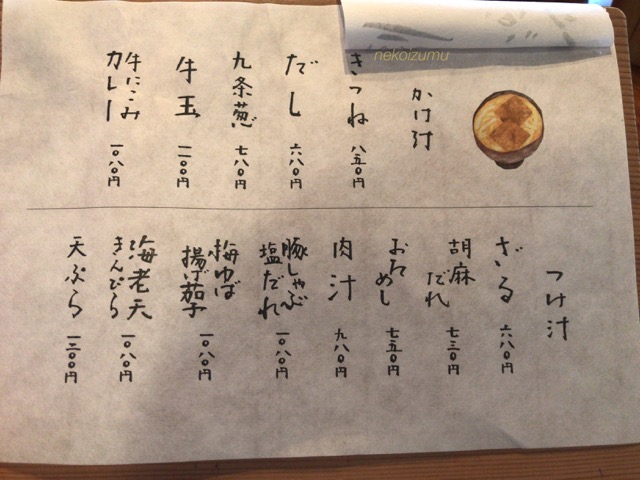 nekoizumu
かけ汁
きつね 八五〇円
だし 六八〇円
九条葱 七八〇円
牛玉 一一〇〇円
牛にこみ
カレー 一〇八〇円
つけ汁
ざる 六八〇円
胡麻
だれ 七三〇円
おためし 七五〇円
肉汁 九八〇円
豚しゃぶ
塩だれ 一〇八〇円
梅ゆば
揚げ茄子 一〇八〇円
海老天
きんぴら 一〇八〇円
天ぷら 一三〇〇円